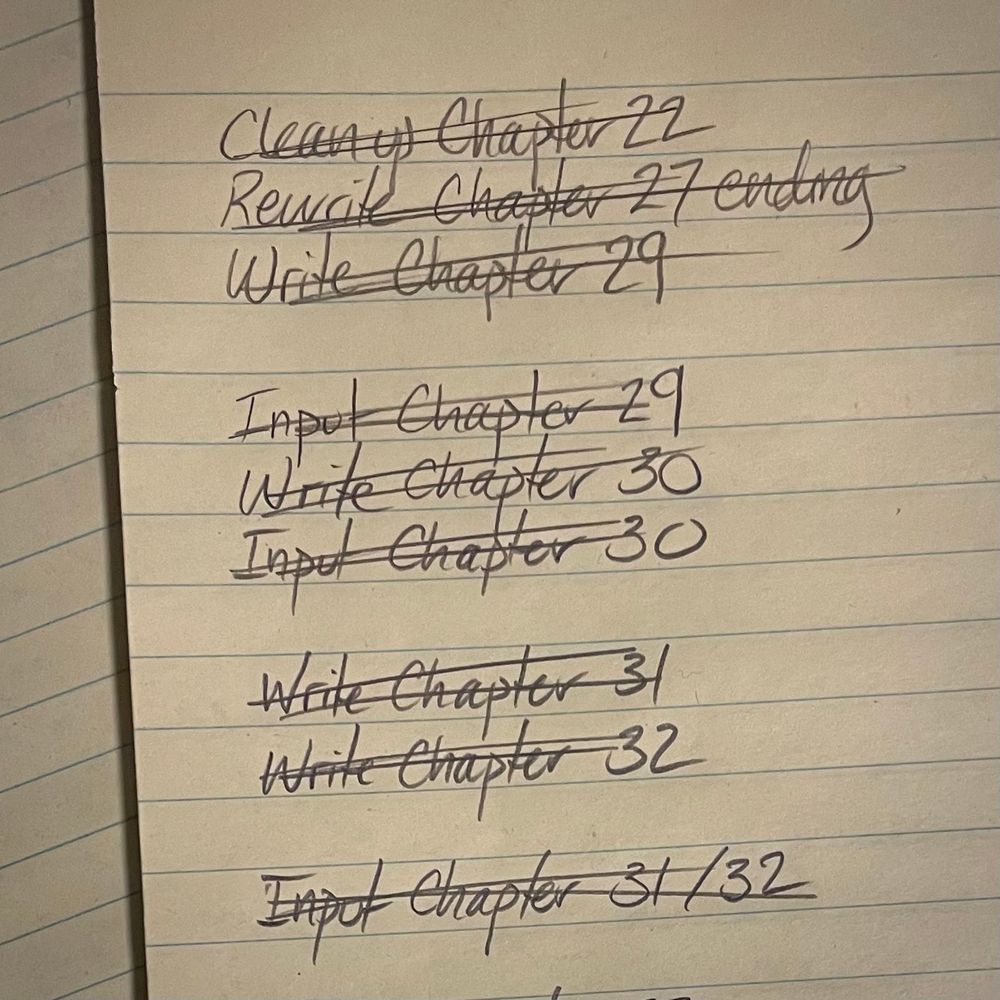 Cleanup Chapter 22
Rewrite Chapter 27 ending
Write Chapter 29
Input Chapter 29
Write Chapter 30
Input Chapter 30
Write Chapter 31
Write Chapter 32
Input Chapter 31/32